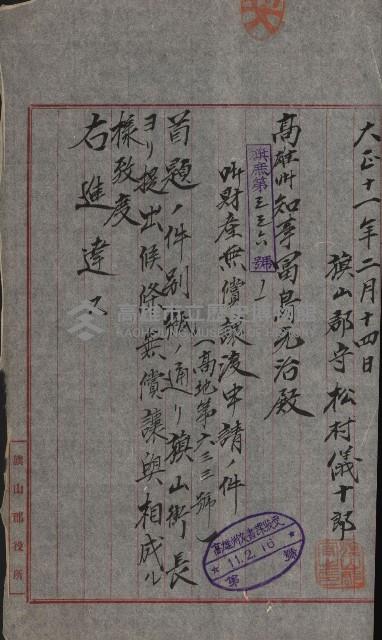 大正十一年二月十四日
旗山郡守松村儀十郎
高雄州知事冨島元治殿
州財産無償譲渡申請ノ件
(高地第六三三號)
首題ノ件別紙ノ通リ旗山街長
ヨリ提出候條無償讓與相成ル
樣致度
右進達ス
旗山郡役所
高雄州文書課收受
11.2.16
第 號
高雄市立歷史博物館
KAOHSIUNG MUSEUM OF HISTORY